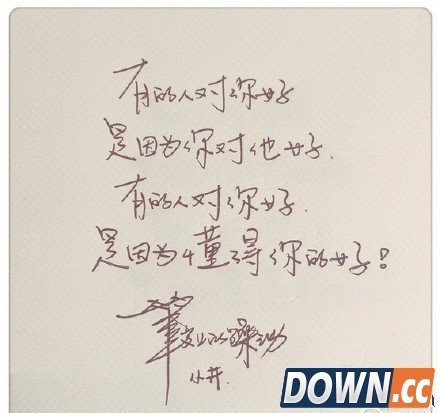 有的人对你好
是因为你对他好.
有的人对你好.
是因为懂得你的好!
笔尖上的躁动
小井.
DOWN.cc